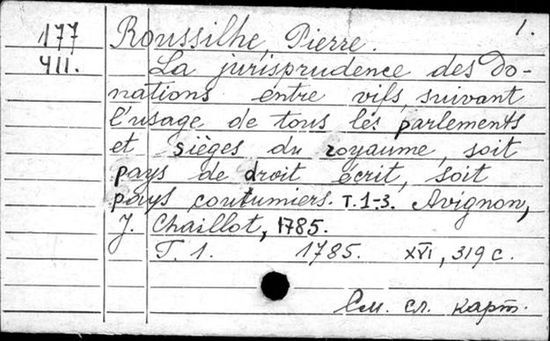 1.
177 Roussilhe, Pierre.
411. La jurisprudence des do-
nations entre vifs suivant
l'usage de tous les parlements
et sièges du royaume, soit
pays de droit écrit, soit
pays coutumiers. T. 1-3. Avignon,
J. Chaillot, 1785.
T. 1. 1785. XVI, 319 с.
См. сл. карт.